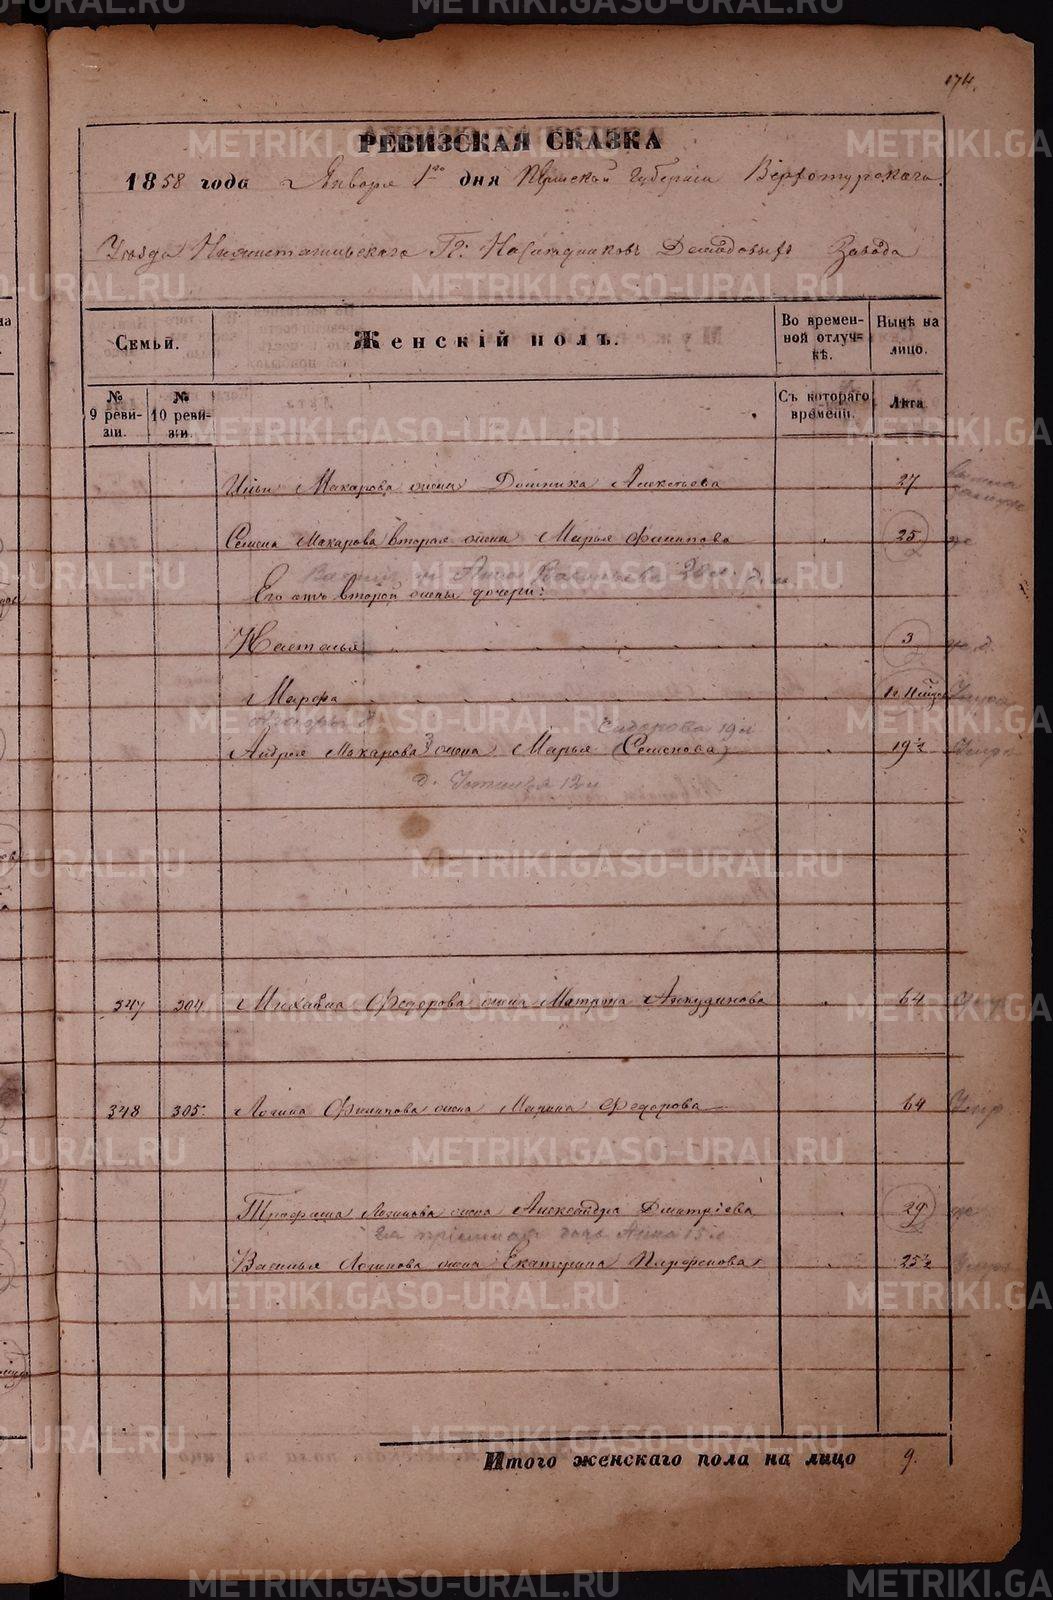 174.
РЕВИЗСКАЯ СКАЗКА
1858 года Января 1го дня Пермской Губернии Верхотурскаго
Уѣзда Нижнетагильскаго Гг: Наслѣдниковъ Демидовыхъ Завода
Семьи.
Женскій полъ.
Во времен-
ной отлуч-
кѣ.
Нынѣ на
лицо.
№
9 реви-
зіи.
№
10 реви-
зіи.
Съ котораго
времени.
Лѣта
Ильи Макарова жена Домника Алексѣева 27
Семена Макарова вторая жена Марья Филипова 25
Анна 20 л.
Его отъ второй жены дочери:
Наталья 3
Марфа
Сидорова 19 л
Андрея Макарова жена Марья (Семенова) 19½
д. 12 л
347 304. Михаила Федорова жена Матрена Анкудинова 64
348 305. Логина Филипова жена Марина Федорова 64 Умер
Трофима Логинова жена Александра Дмитріева 29
дочь Анна 15 л
Василья Логинова жена Екатерина Парфенова 25½
Итого женскаго пола на лицо 9.
METRIKI.GASO-URAL.RU